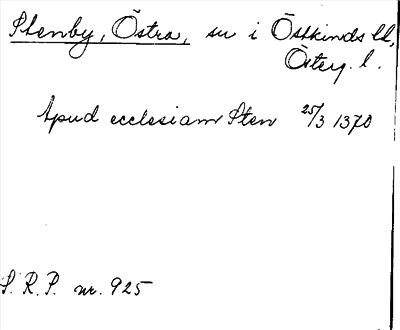 Stenby, Östra, sn i Östkinds hd,
Österg. l.
Apud ecclesiam Sten 25/3 1370
S.R.P. nr. 925